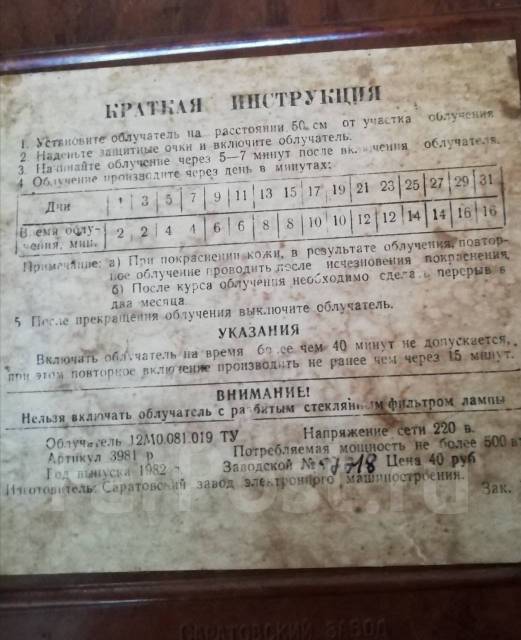 КРАТКАЯ ИНСТРУКЦИЯ
1. Установите облучатель на расстоянии 50 см от участка облучения
2. Наденьте защитные очки и включите облучатель.
3. Начинайте облучение через 5—7 минут после включения облучателя.
4 Облучение производите через день в минутах:
Дни 1 3 5 7 9 11 13 15 17 19 21 23 25 27 29 31
Время облу-
чения, мин. 2 2 4 4 6 6 8 8 10 10 12 12 14 14 16 16
Примечание: а) При покраснении кожи, в результате облучения, повтор-
ное облучение проводить после исчезновения покраснения,
б) После курса облучения необходимо сделать перерыв в
два месяца.
5 После прекращения облучения выключите облучатель.
УКАЗАНИЯ
Включать облучатель на время более чем 40 минут не допускается,
при этом повторное включение производить не ранее чем через 15 минут.
ВНИМАНИЕ!
Нельзя включать облучатель с разбитым стеклянным фильтром лампы
Облучатель 12М0.081.019 ТУ Напряжение сети 220 в.
Артикул 3981 р Потребляемая мощность не более 500 вт
Год выпуска 1982 г. Заводской № Цена 40 руб
Изготовитель: Саратовский завод электронного машиностроения.
Зак.
САРАТОВСКИЙ ЗАВОД